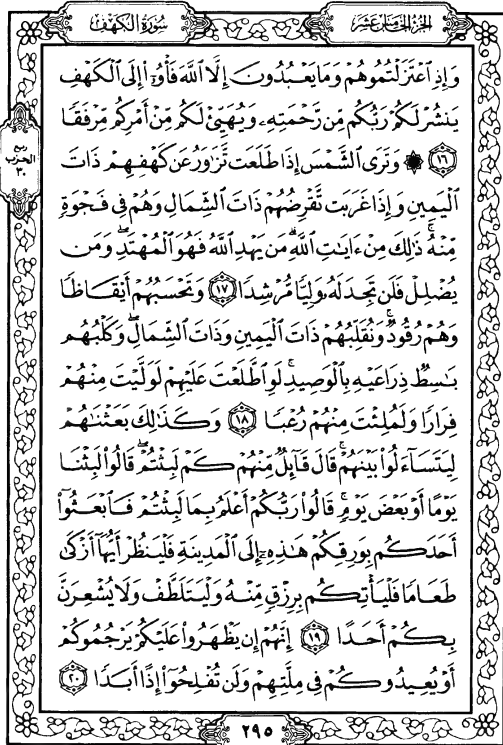 سورة الكهف
الجزء الخامس عشر
وَإِذِ ٱعْتَزَلْتُمُوهُمْ وَمَا يَعْبُدُونَ إِلَّا ٱللَّهَ فَأْوُۥٓا۟ إِلَى ٱلْكَهْفِ
يَنشُرْ لَكُمْ رَبُّكُم مِّن رَّحْمَتِهِۦ وَيُهَيِّئْ لَكُم مِّنْ أَمْرِكُم مِّرْفَقًا
١٦ ۞ وَتَرَى ٱلشَّمْسَ إِذَا طَلَعَت تَّزَٰوَرُ عَن كَهْفِهِمْ ذَاتَ
ٱلْيَمِينِ وَإِذَا غَرَبَت تَّقْرِضُهُمْ ذَاتَ ٱلشِّمَالِ وَهُمْ فِى فَجْوَةٍ
مِّنْهُ ۚ ذَٰلِكَ مِنْ ءَايَٰتِ ٱللَّهِ ۗ مَن يَهْدِ ٱللَّهُ فَهُوَ ٱلْمُهْتَدِ ۖ وَمَن
يُضْلِلْ فَلَن تَجِدَ لَهُۥ وَلِيًّا مُّرْشِدًا ١٧ وَتَحْسَبُهُمْ أَيْقَاظًا
وَهُمْ رُقُودٌ ۚ وَنُقَلِّبُهُمْ ذَاتَ ٱلْيَمِينِ وَذَاتَ ٱلشِّمَالِ ۖ وَكَلْبُهُم
بَٰسِطٌ ذِرَاعَيْهِ بِٱلْوَصِيدِ ۚ لَوِ ٱطَّلَعْتَ عَلَيْهِمْ لَوَلَّيْتَ مِنْهُمْ
فِرَارًا وَلَمُلِئْتَ مِنْهُمْ رُعْبًا ١٨ وَكَذَٰلِكَ بَعَثْنَٰهُمْ
لِيَتَسَآءَلُوا۟ بَيْنَهُمْ ۚ قَالَ قَآئِلٌ مِّنْهُمْ كَمْ لَبِثْتُمْ ۖ قَالُوا۟ لَبِثْنَا
يَوْمًا أَوْ بَعْضَ يَوْمٍ ۚ قَالُوا۟ رَبُّكُمْ أَعْلَمُ بِمَا لَبِثْتُمْ فَٱبْعَثُوٓا۟
أَحَدَكُم بِوَرِقِكُمْ هَٰذِهِۦٓ إِلَى ٱلْمَدِينَةِ فَلْيَنظُرْ أَيُّهَآ أَزْكَىٰ
طَعَامًا فَلْيَأْتِكُم بِرِزْقٍ مِّنْهُ وَلْيَتَلَطَّفْ وَلَا يُشْعِرَنَّ
بِكُمْ أَحَدًا ١٩ إِنَّهُمْ إِن يَظْهَرُوا۟ عَلَيْكُمْ يَرْجُمُوكُمْ
أَوْ يُعِيدُوكُمْ فِى مِلَّتِهِمْ وَلَن تُفْلِحُوٓا۟ إِذًا أَبَدًا ٢٠
ربع
الحزب
٣٠
٢٩٥